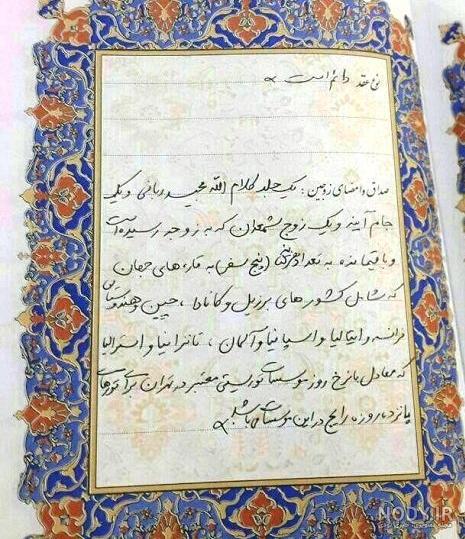 نوع عقد دائم است
صداق و امضای زوجین: یک جلد کلام الله مجید ربانی و یک
جام آینه و یک زوج شمعدان که به زوجه رسیده است
و باقیمانده به تعداد پنج (پنج سفر) به قاره‌های جهان
که شامل کشورهای برزیل و کانادا، چین و هندوستان
فرانسه و ایتالیا و اسپانیا و آلمان، تانزانیا و استرالیا
که معادل با نرخ روز موسسات توریستی معتبر در تهران برای تورهای
پانزده روزه رایج در این موسسات می باشد
NODY.IR